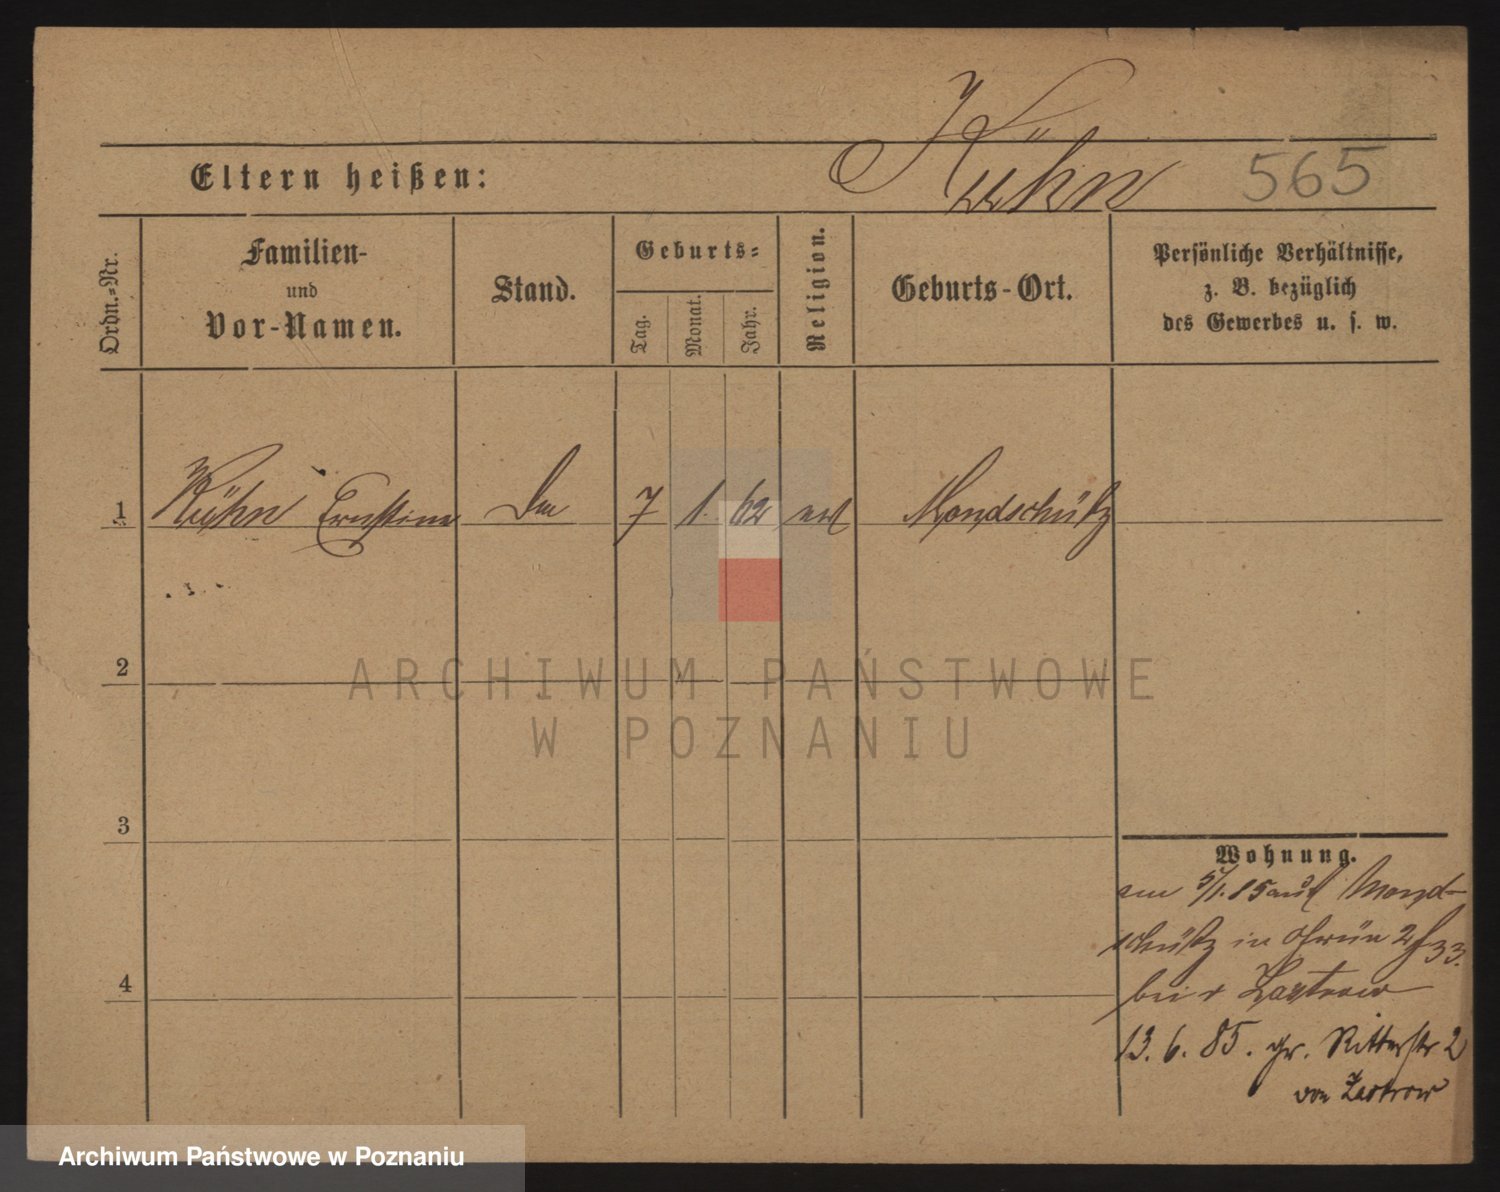 Kühn
Eltern heißen:
565
Ordn.-Nr.
Familien-
und
Vor-Namen.
Stand.
Geburts-
Tag.
Monat.
Jahr.
Religion.
Geburts-Ort.
Persönliche Verhältnisse,
z. B. bezüglich
des Gewerbes u. s. w.
1 Kühn Ernstine 7 1. 62 Mondschütz
2
3
4
Wohnung.
am 5/1. 85 Mond-
schütz in 33.
bei v Zastrow
13. 6. 85. gr. Ritterstr 2
von Zastrow
ARCHIWUM PAŃSTWOWE
W POZNANIU
Archiwum Państwowe w Poznaniu